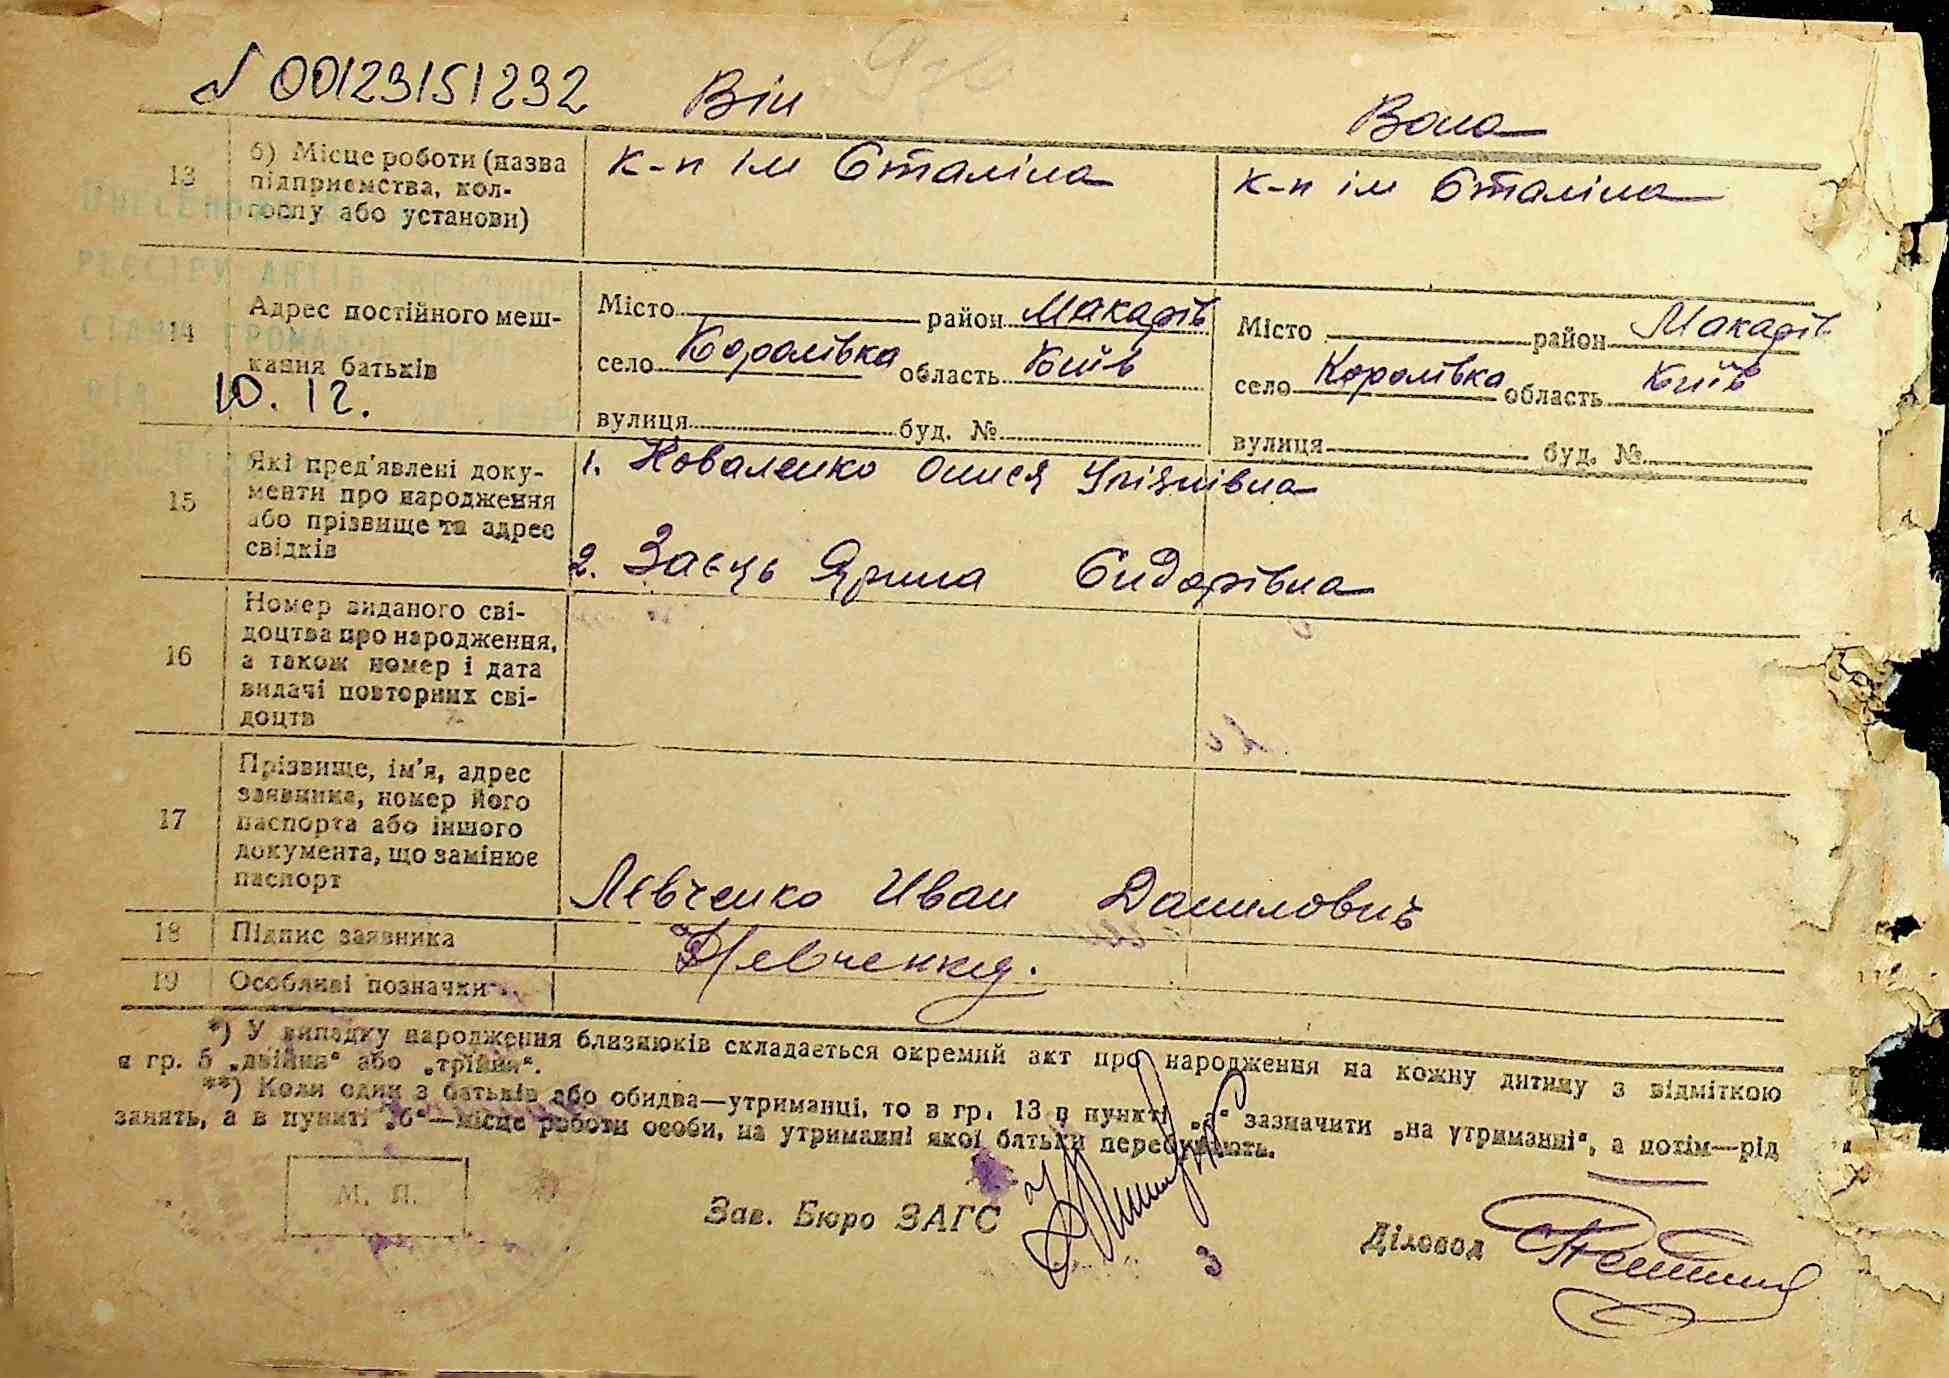 N 00123151232 Він Вона
13 б) Місце роботи (назва підприємства, колгоспу або установи)
к-п ім Сталіна к-п ім Сталіна
14 Адрес постійного мешкання батьків
Місто район Макарів Місто район Макарів
село Королівка область Київ село Королівка область Київ
вулиця буд. № вулиця буд. №
10.12.
15 Які пред'явлені документи про народження або прізвище та адрес свідків
1. Коваленко Олися
2. Заєць Ярина Сидорівна
16 Номер виданого свідоцтва про народження, а також номер і дата видачі повторних свідоцтв
17 Прізвище, ім'я, адрес заявника, номер його паспорта або іншого документа, що замінює паспорт
Лєвченко Иван Данилович
18 Підпис заявника
19 Особливі позначки
*) У випадку народження близнюків складається окремий акт про народження на кожну дитину з відміткою
в гр. 5 „двійня“ або „трійня“.
**) Коли один з батьків або обидва—утриманці, то в гр. 13 в пункті „а“ зазначити „на утриманні“, а потім—рід
занять, а в пункті „б“—місце роботи особи, на утриманні якої батьки перебувають.
М. П.
Зав. Бюро ЗАГС
3
Діловод